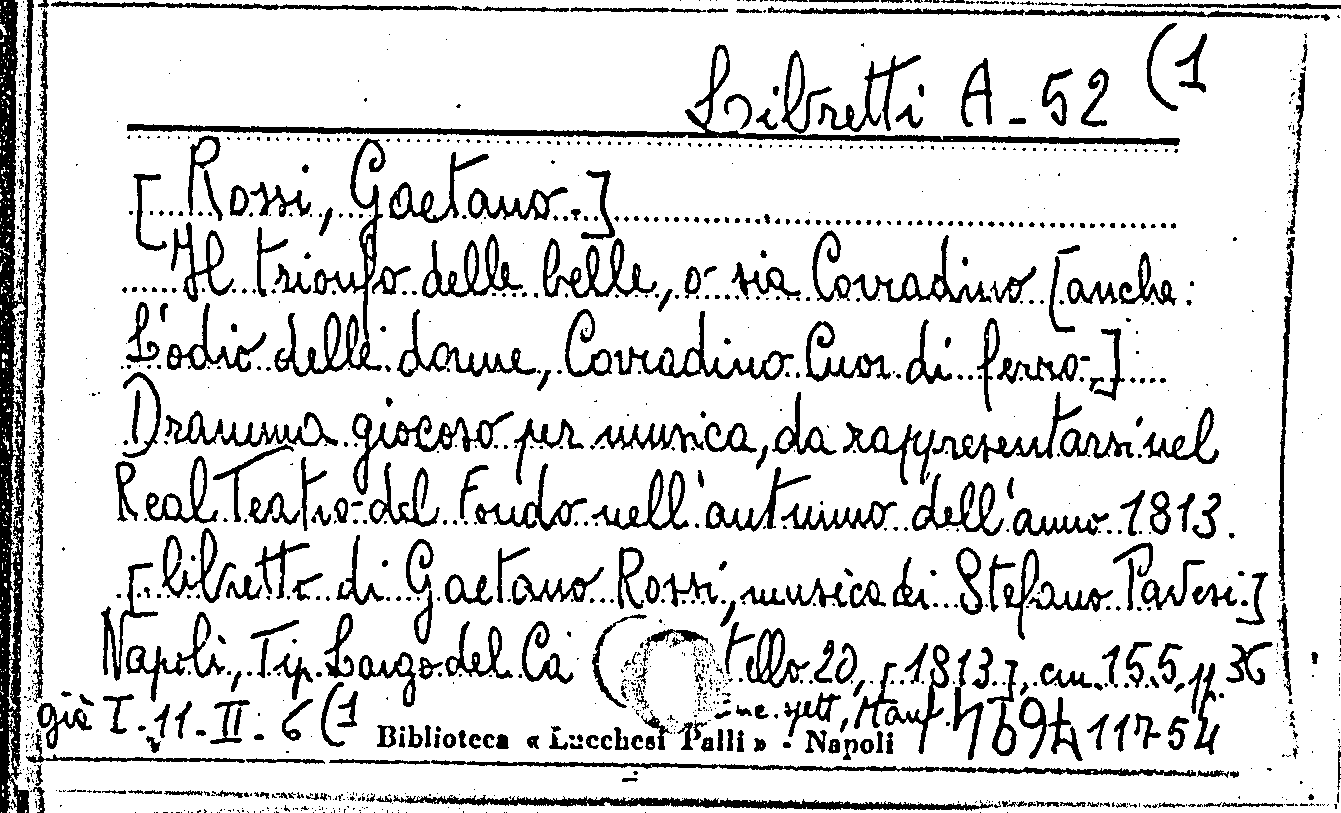 Libretti A - 52 (1
[Rossi, Gaetano.]
Il trionfo delle belle, o sia Corradino [anche:
L'odio delle donne, Corradino Cuor di ferro.]
Dramma giocoso per musica, da rappresentarsi nel
Real Teatro del Fondo nell'autunno dell'anno 1813.
[libretto di Gaetano Rossi, musica di Stefano Pavesi.]
Napoli, Tip. Largo del Ca tello 20, [1813], cm. 15,5, pp. 36
già I-11-II-6 (1 11754
Biblioteca « Lucchesi Palli » - Napoli